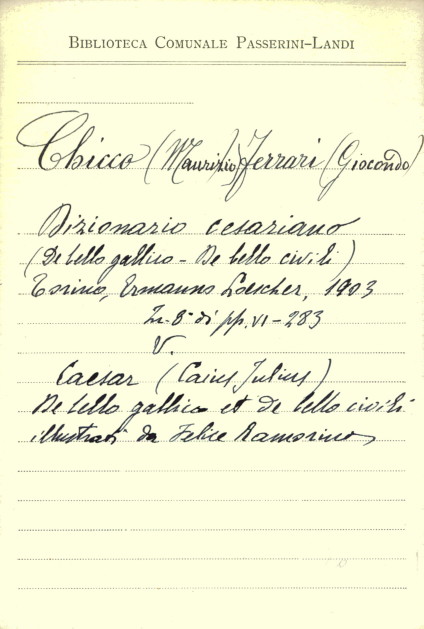 BIBLIOTECA COMUNALE PASSERINI-LANDI
Chicco (Maurizio) Ferrari (Giocondo)
Dizionario cesariano
(De bello gallico - De bello civili)
Torino, Ermanno Loescher, 1903
In-8° di pp. VI-283
V.
Caesar (Caius Julius)
De bello gallico et de bello civili
illustrati da Felice Ramorino